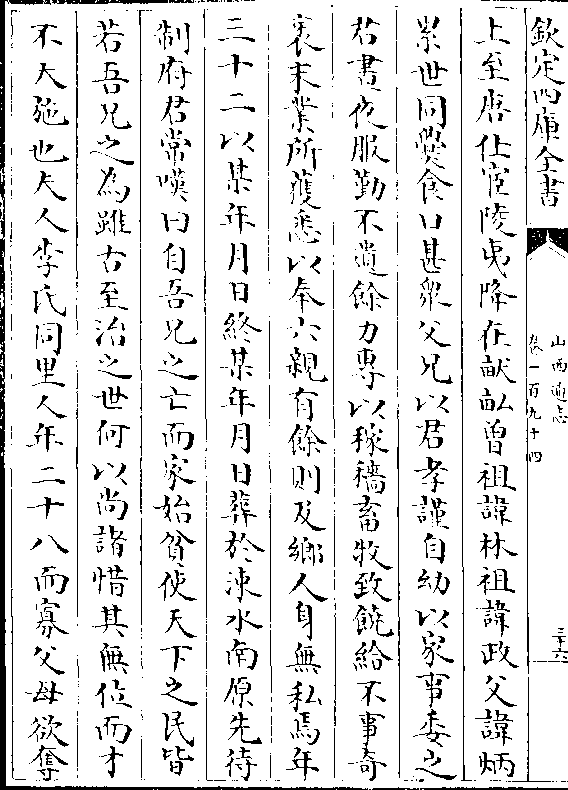 欽定四庫全書
山西通志
卷一百九十四
三十六
上至唐仕宦陵夷降在畎畝曾祖諱林祖諱政父諱炳
累世同爨食口甚衆父兄以君孝謹自幼以家事委之
君晝夜服勤不遺餘力專以稼穡畜牧致饒給不事竒
衺末業所獲悉以奉六親有餘則及鄉人身無私焉年
三十二以某年月日終某年月日葬於涑水南原先待
制府君常嘆曰自吾兄之亡而家始貧使天下之民皆
若吾兄之為雖古至治之世何以尚諸惜其無位而才
不大施也夫人李氏同里人年二十八而寡父母欲奪